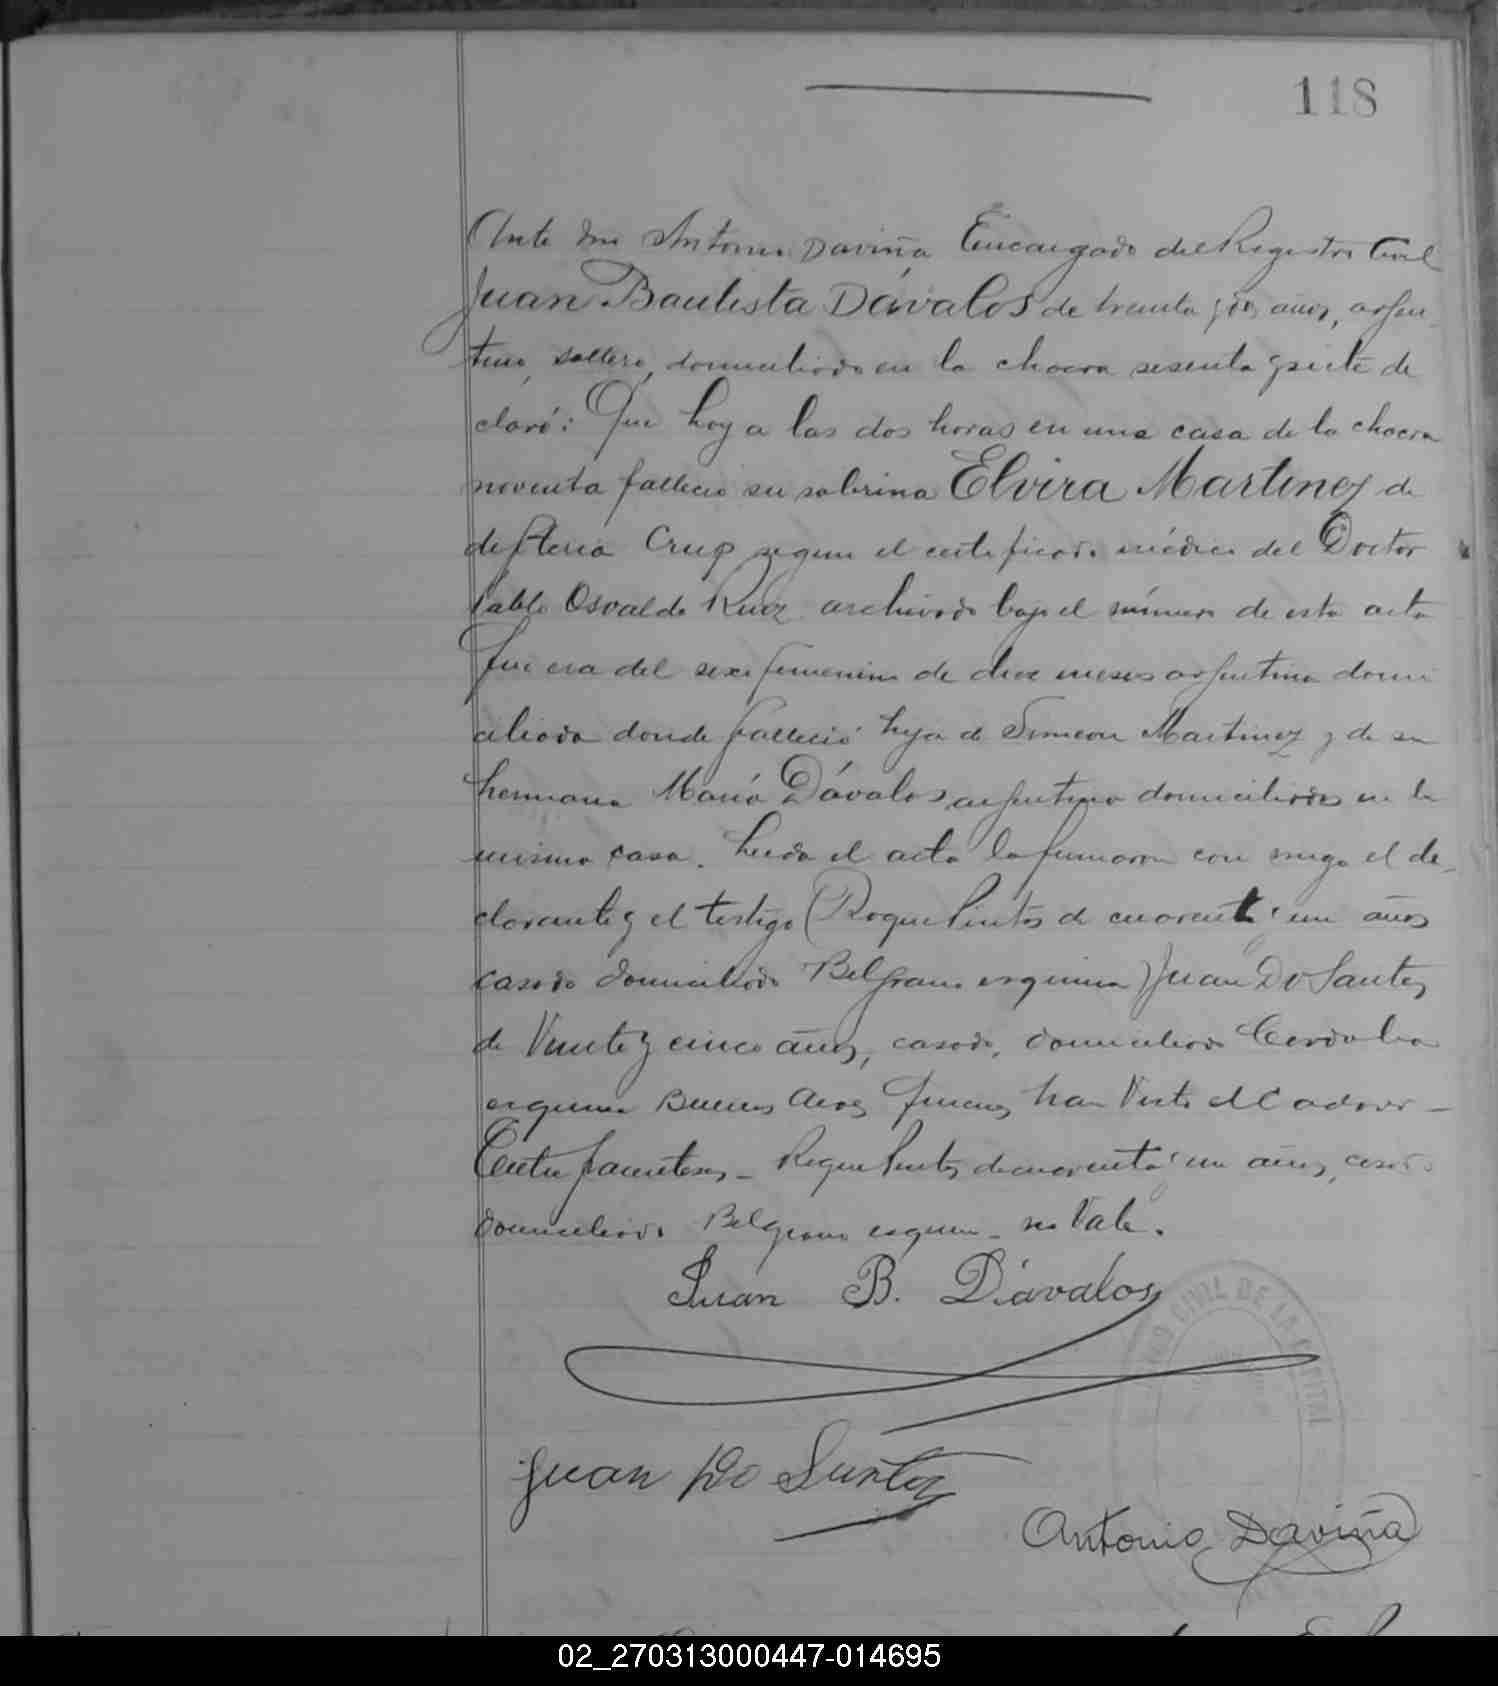 118
Ante don Antonio Daviña Encargado del Registro Civil
Juan Bautista Dávalos de treinta y dos años, argen-
tino, soltero, domiciliado en la chacra sesenta y siete de
claró: Que hoy a las dos horas en una casa de la chacra
noventa falleció su sobrina Elvira Martinez de
difteria Crup segun el certificado médico del Doctor
Pablo Osvaldo Ruiz archivado bajo el número de esta acta
Que era del sexo femenino de diez meses argentina domi
ciliada donde falleció hija de Simeon Martinez y de su
hermana María Dávalos argentina domiciliados en la
misma casa. Leida el acta la firmaron con migo el de-
clarante y el testigo (Roque Pintos de cuarenta y un años
casado domiciliado Belgrano esquina) Juan Do Santos
de Veinte y cinco años, casado, domiciliado Cordoba
esquina Buenos Aires Quienes han Visto el Cadaver -
Entre parentesis - Roque Pintos de cuarenta y un años, casado
domiciliado Belgrano esquina - no Vale.
Juan B. Dávalos
REGISTRO CIVIL DE LA CAPITAL
Juan Do Santos
Antonio Daviña
02_270313000447-014695